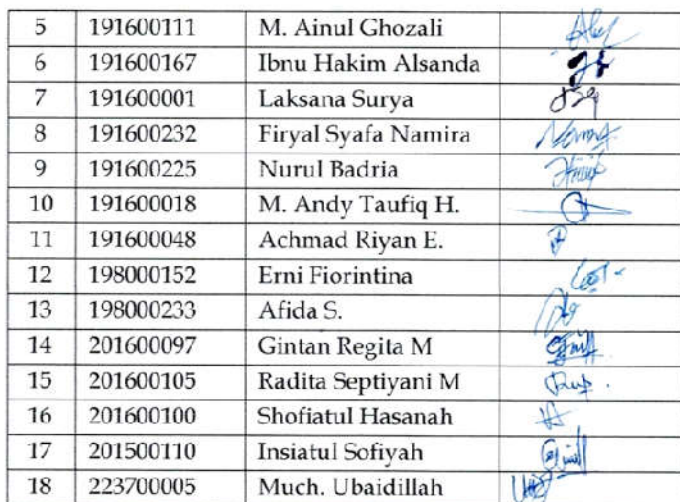 5 191600111 M. Ainul Ghozali
6 191600167 Ibnu Hakim Alsanda
7 191600001 Laksana Surya
8 191600232 Firyal Syafa Namira
9 191600225 Nurul Badria
10 191600018 M. Andy Taufiq H.
11 191600048 Achmad Riyan E.
12 198000152 Erni Fiorintina
13 198000233 Afida S.
14 201600097 Gintan Regita M
15 201600105 Radita Septiyani M
16 201600100 Shofiatul Hasanah
17 201500110 Insiatul Sofiyah
18 223700005 Much. Ubaidillah